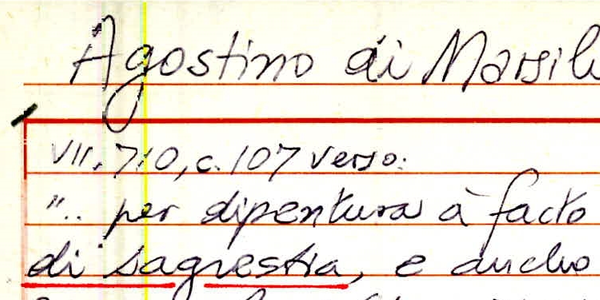 Agostino di Marsil
VII. 710, c. 107 verso:
".. per dipentura à facto
di sagrestia, e ancho